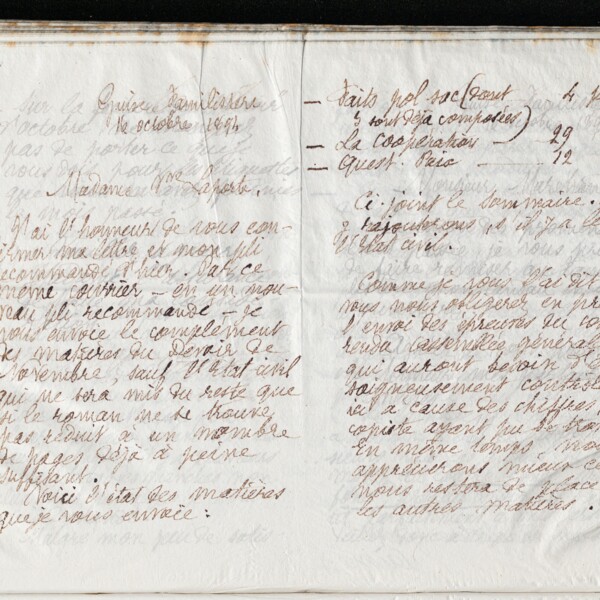 Guise Familistère
16 octobre 1894
Madame Vve Laporte,
J'ai l'honneur de vous con-
firmer ma lettre et mon pli
recommandé d'hier. Par ce
même courrier – en un nou-
veau pli recommandé – je
vous envoie le complément
des matières du Devoir de
Novembre, sauf l'Etat civil
qui ne sera mis du reste que
si le roman ne se trouve
pas réduit à un nombre
de pages déjà à peine
suffisant.
Voici l'état des matières
que je vous envoie :
— Faits pol. soc. (dont 4
3 sont déjà composées)
— La coopération — 29
— Quest. Paix — 12
Ci-joint le sommaire.
y rajouterons, s'il y a
l'Etat civil.
Comme je vous l'ai dit
vous nous obligerez en
l'envoi des épreuves du
rendu Assemblée générale
qui auront besoin d'
soigneusement
vu à cause des chiffres
copiste ayant pu se
En même temps, nous
apprécierons mieux ce
nous restera de place
les autres matières.